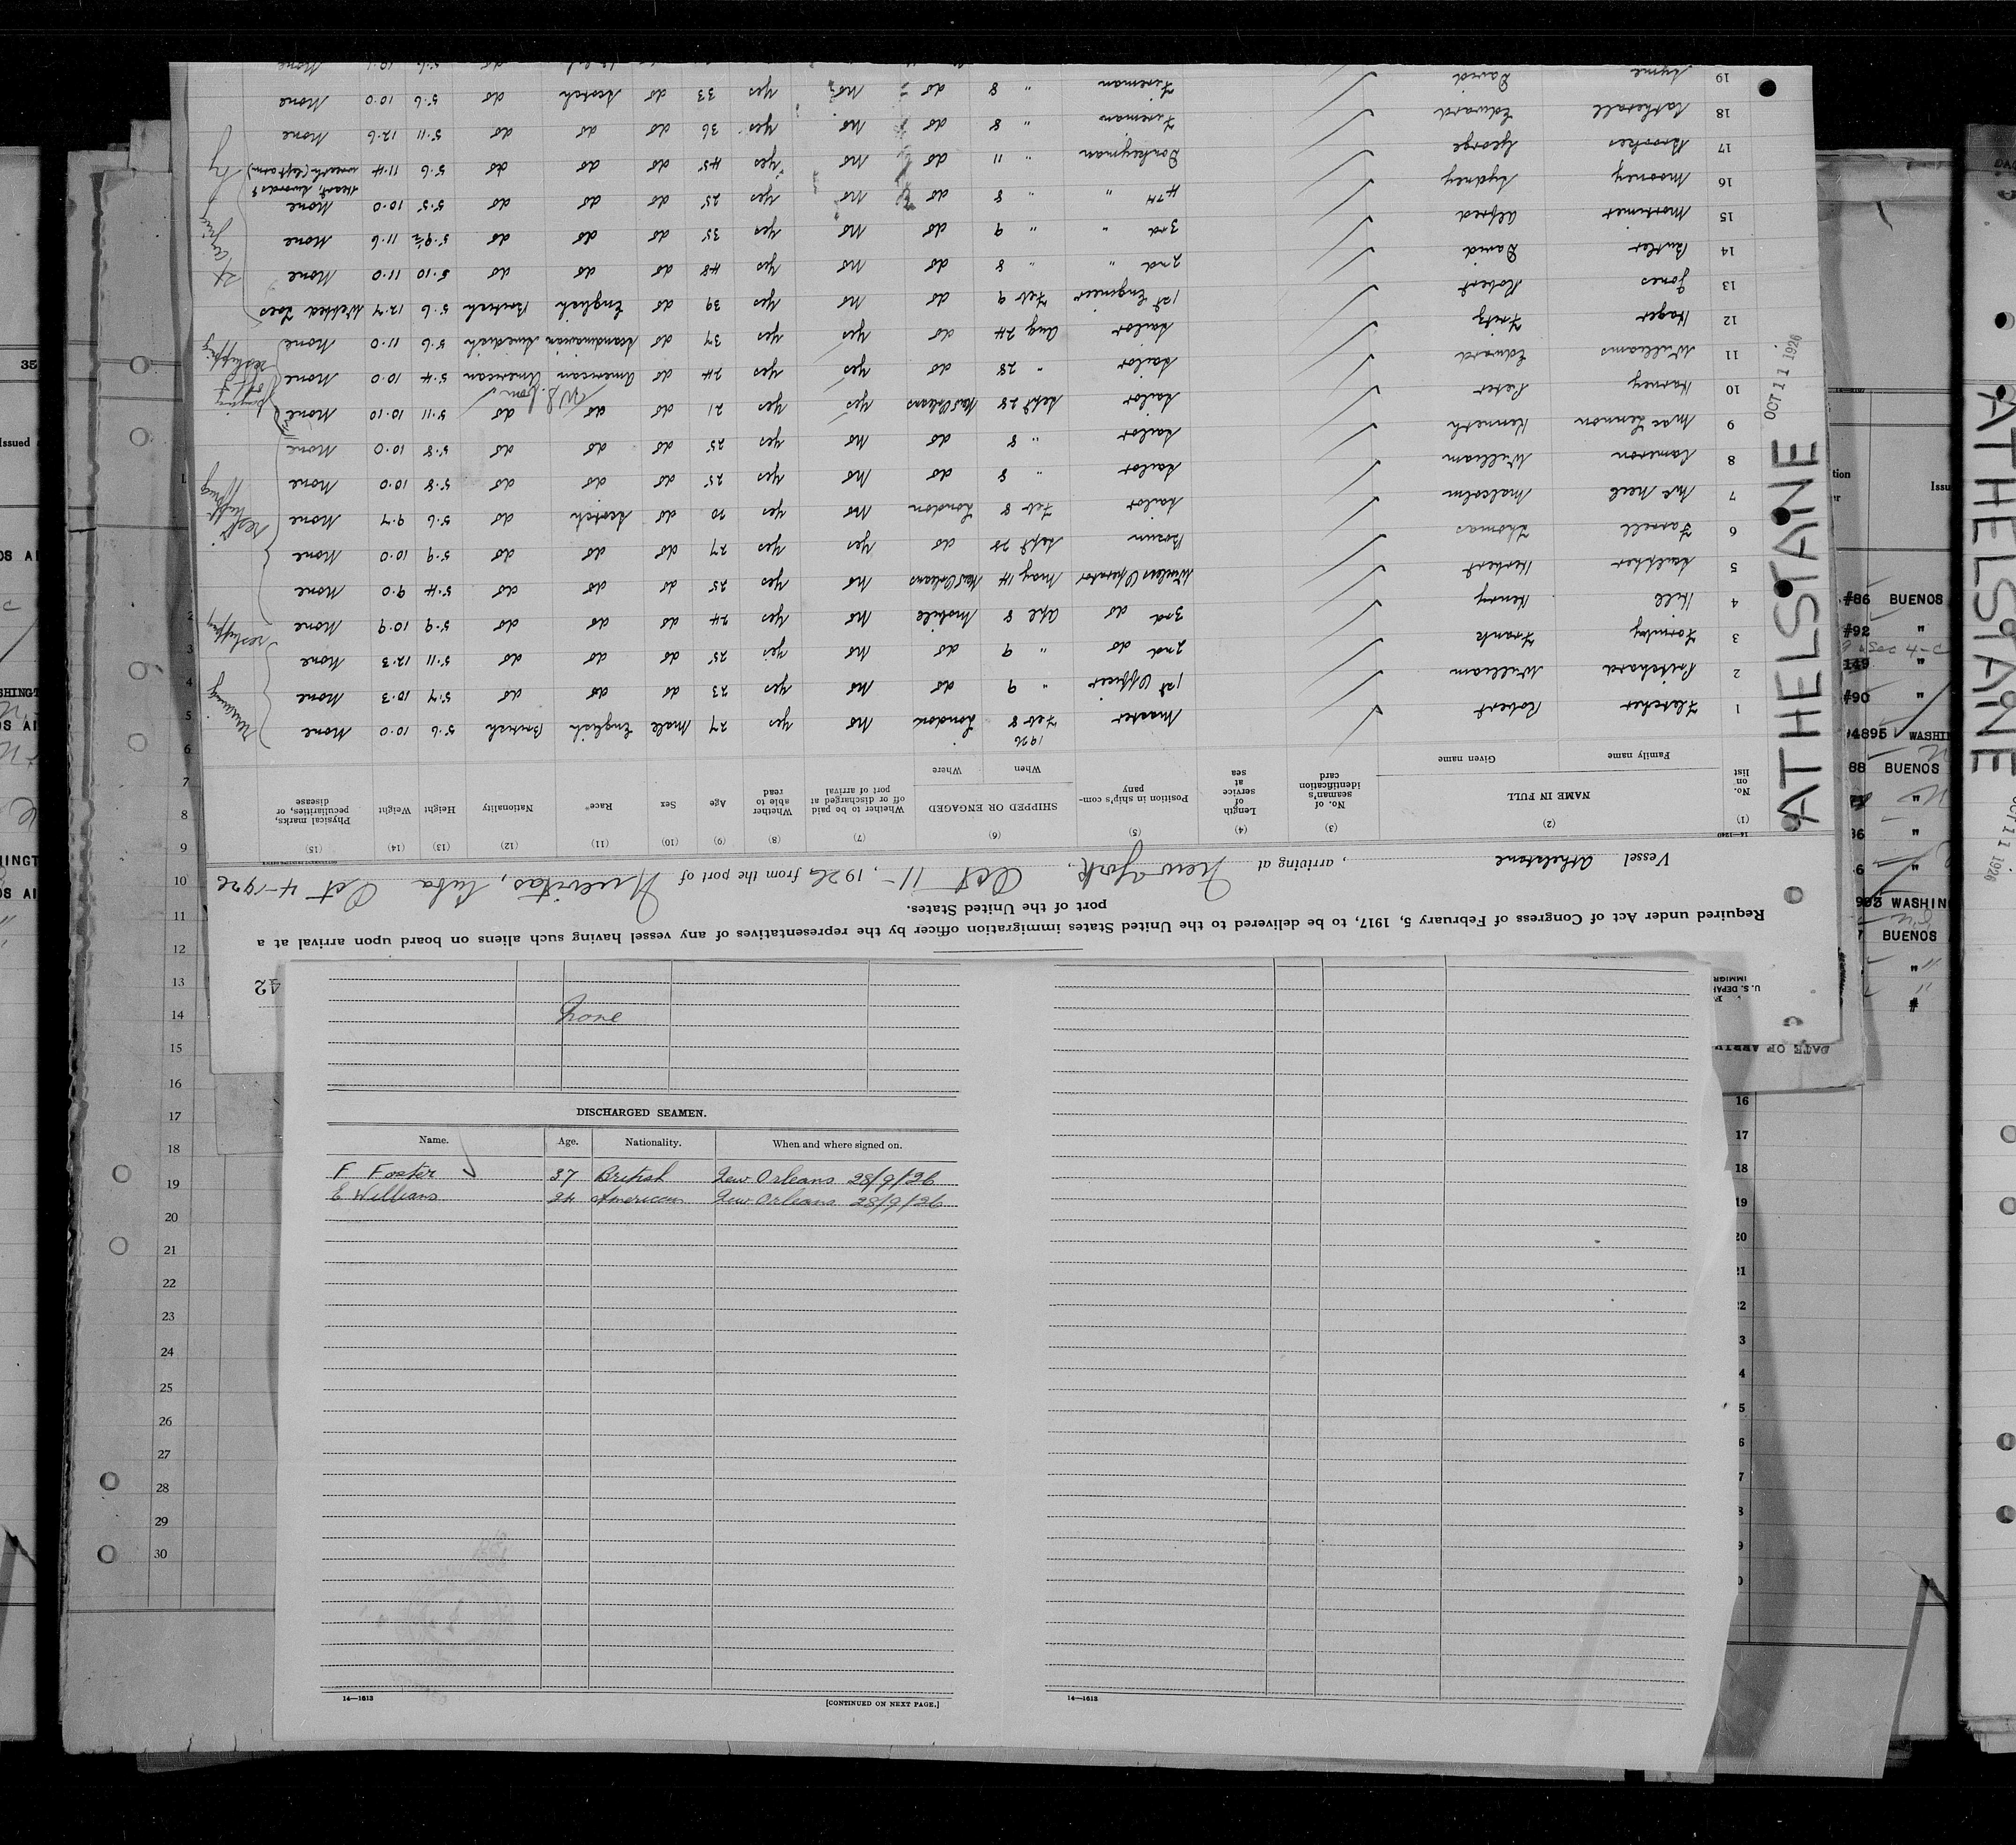 Required under Act of Congress of February 5, 1917, to be delivered to the United States immigration officer by the representatives of any vessel having such aliens on board upon arrival at a
port of the United States.
Vessel Athelstane, arriving at New York, Oct 11, 1926, from the port of Nuevitas, Cuba Oct 4-1926
14-1240
(1) (2) (3) (4) (5) (6) (7) (8) (9) (10) (11) (12) (13) (14) (15)
No. on list NAME IN FULL No. of seaman's identification card Length of service at sea Position in ship's company SHIPPED OR ENGAGED Whether to be paid off or discharged at port of arrival Whether able to read Age Sex Race* Nationality Height Weight Physical marks, peculiarities, or disease
Family name Given name When Where
1926
1 Fletcher Robert Master Feb 8 London No Yes 27 Male English British 5.6 10.0 None
2 Pritchard William 1st Officer " 9 do No Yes 23 do do do 5.7 10.3 None
3 Formby Frank 2nd do " 9 do No Yes 25 do do do 5.11 12.3 None
4 Hill Henry 3rd do Apl 8 Mobile No Yes 24 do do do 5.9 10.9 None
5 Herbert Wireless Operator May 14 New Orleans No Yes 25 do do do 5.4 9.0 None
6 Farrell Thomas Bosun Sept 28 do Yes Yes 27 do do do 5.9 10.0 None
7 McNeil Malcolm Sailor Feb 8 London No Yes 20 do Scotch do 5.6 9.7 None
8 Cameron William Sailor " 8 do No Yes 25 do do do 5.8 10.0 None
9 MacLennon Kenneth Sailor " 8 do No Yes 25 do do do 5.8 10.0 None
10 Harvey Peter Sailor Sept 28 New Orleans Yes Yes 21 do do do 5.11 10.10 None
11 Williams Edward Sailor " 28 do Yes Yes 24 do American American 5.4 10.0 None
12 Hager Fritz Sailor Aug 24 do Yes Yes 37 do Scandinavian Swedish 5.6 11.0 None
13 Jones Robert 1st Engineer Feb 9 do No Yes 39 do English British 5.6 12.7 Webbed Toes
14 Butler David 2nd " " 8 do No Yes 48 do do do 5.10 11.0 None
15 Mortimer Alfred 3rd " " 9 do No Yes 35 do do do 5.9½ 11.6 None
16 Mooney Sydney 4th " " 8 do No Yes 25 do do do 5.5 10.0 None
17 Brookes George Donkeyman " 11 do No Yes 45 do do do 5.6 11.4 Heart, Swords & wreath (left arm)
18 Catherall Edward Fireman " 8 do No Yes 36 do do do 5.11 12.6 None
19 Lyme David Fireman " 8 do No Yes 33 do Scotch do 5.6 10.0 None
remaining
reshipping
ATHELSTANE
OCT 11 1926
42
None
DISCHARGED SEAMEN.
Name. Age. Nationality. When and where signed on.
F Foster 37 British New Orleans 28/9/26
E Williams 24 American New Orleans 28/9/26
14—1613 [CONTINUED ON NEXT PAGE.]
14—1613
35
Issued
6
7
8
9
10
11
12
13
14
15
16
17
18
19
20
21
22
23
24
25
26
27
28
29
30
#86 BUENOS
#92 "
149 "
#90 "
88 BUENOS
BUENOS
DATE OF ARRIV
16
17
18
19
20
21
22
ATHELSTANE
OCT 11 1926